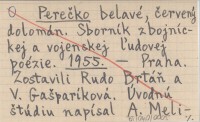 Perečko belavé, červený
dolomán. Sborník zbojníc-
kej a vojenskej ľudovej
poézie. 1955. — Praha.
Zostavili Rudo Brtáň a
V. Gašparíková. Úvodnú
štúdiu napísal A. Meli-